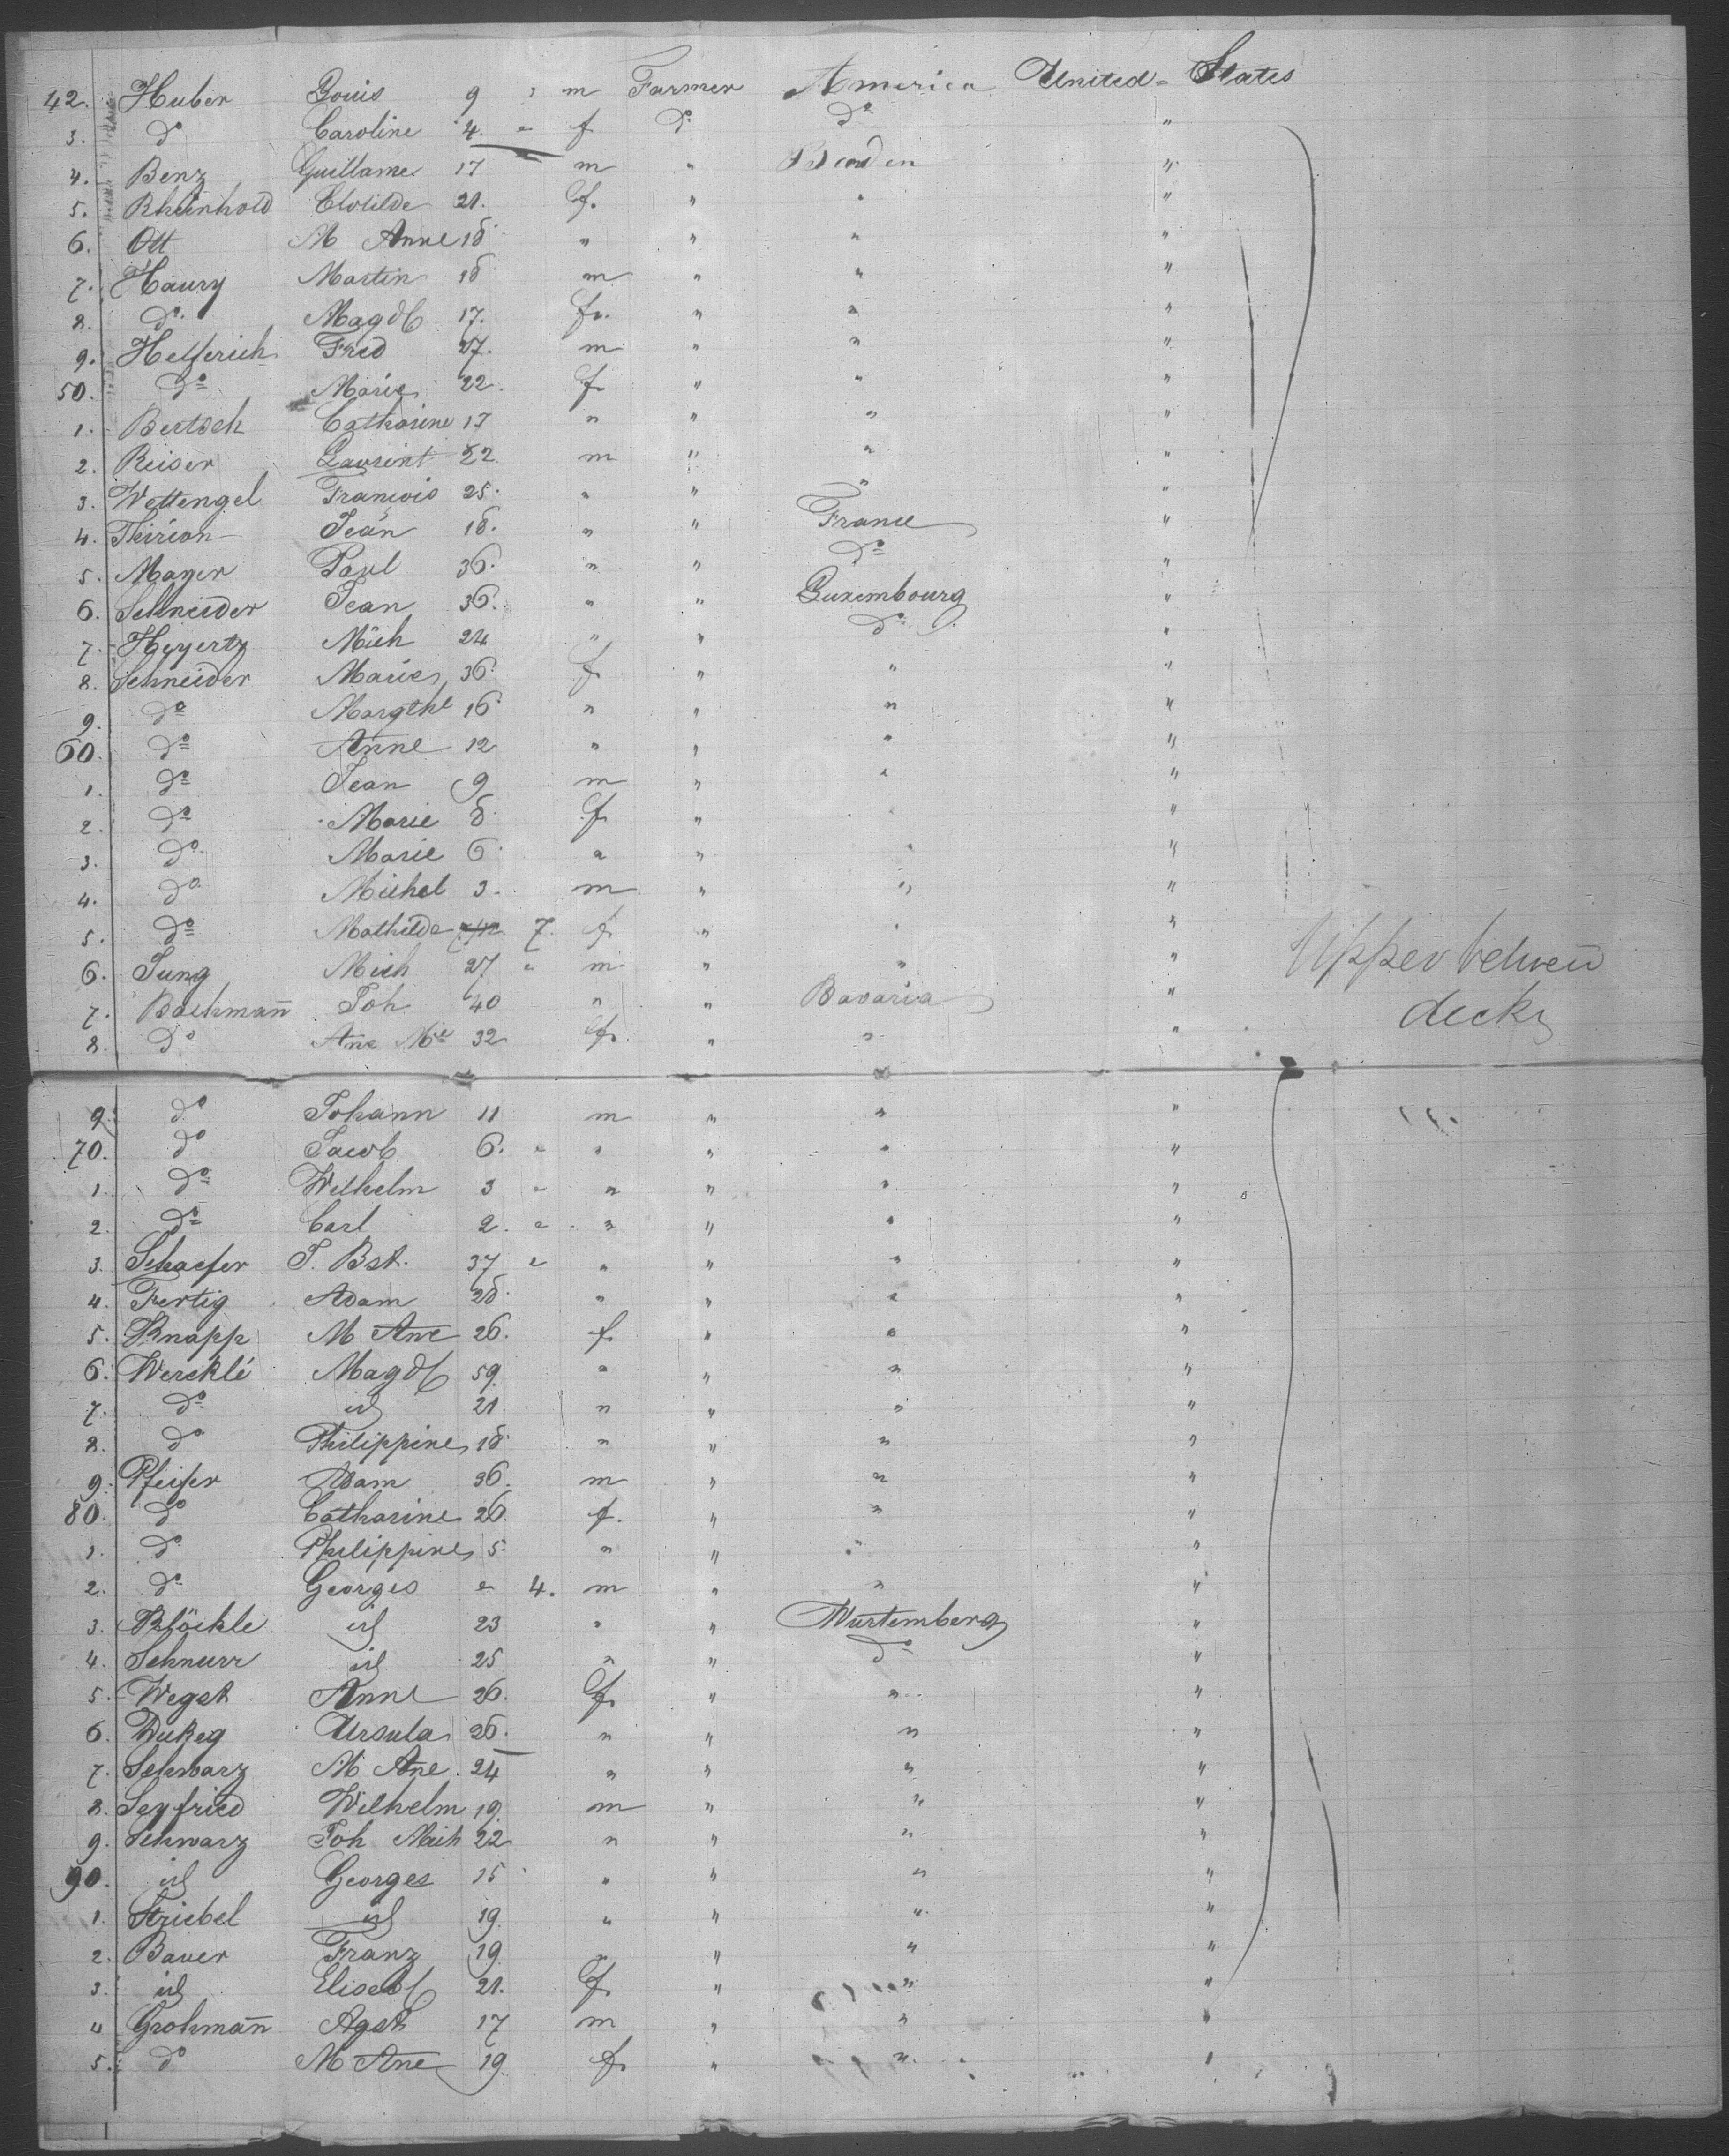 42. Huber Louis 9 " m Farmer America United States
3. do Caroline 4. " f do do "
4. Benz Guillame 17 m " Baden "
5. Rheinhold Clotilde 21. f. " " "
6. Ott M Anne 18 " " " "
7. Haury Martin 18 m " " "
8. do. Magdl 17. f. " " "
9. Helferich Fred 27. m " " "
50. do Marie 22. f. " " "
1. Bertsch Catharine 17 " " " "
2. Reiser Laurent 22. m " " "
3. Wettengel François 25. " " " "
4. Thirion Jean 18. " " France "
5. Mayer Paul 36. " " do "
6. Schneider Jean 36. " " Luxembourg "
7. Heyertz Mich 24 " " do "
8. Schneider Marie 36. f. " " "
9. do Margthe 16 " " " "
60. do Anne 12 " " " "
1. do Jean 9 m " " "
2. do Marie 8. f. " " "
3. do. Marie 6 " " " "
4. do. Michel 3. m " " "
5. do Mathilde 7. f. " " "
6. Jung Mich 27 " m " " " Upper betwen
7. Bachman̄n Joh 40 " " Bavaria " decks
8. do Ane Mie 32 f. " " "
9. do Johann 11 m " " "
70. do Jacob 6. " " " " "
1. do Wilhelm 3 " " " " "
2. do Carl 2. " " " " "
3. Schaefer J. Bst. 37 " " " " "
4. Fertig Adam 28. " " " "
5. Knapp M Ane 26. f " " "
6. Wercklé Magdl 59. " " " "
7. do id 21. " " " "
8. do Philippine 18 " " " "
9. Pfeifer Adam 36. m " " "
80. do Catharine 26. f. " " "
1. do Philippine 5. " " " "
2. do Georges " 4. m " " "
3. Blöckle id 23 " " Wurtemberg "
4. Schnurr id 25 " " do "
5. Wegst Anne 26. f. " " "
6. Ursula 26. " " " "
7. Schwarz M Ane. 24 " " " "
8. Seyfried Wilhelm 19. m " " "
9. Schwarz Joh Mich 22 " " " "
90. id Georges 15 " " " "
1. Striebel id 19. " " " "
2. Bauer Franz 19 " " " "
3. id Elisabl 21. f. " " "
4 Grohman̄n Agst 17 m " " "
5. do M Ane 19 f. " " "